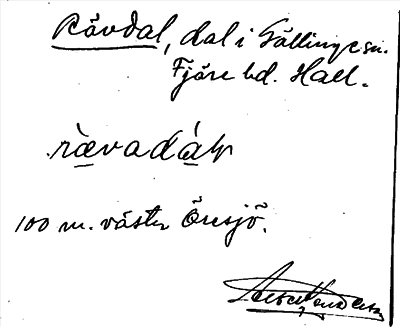 Rävdal, dal i Gällinge sn.
Fjäre hd. Hall.
rævadál
100 m. väster Öresjö.